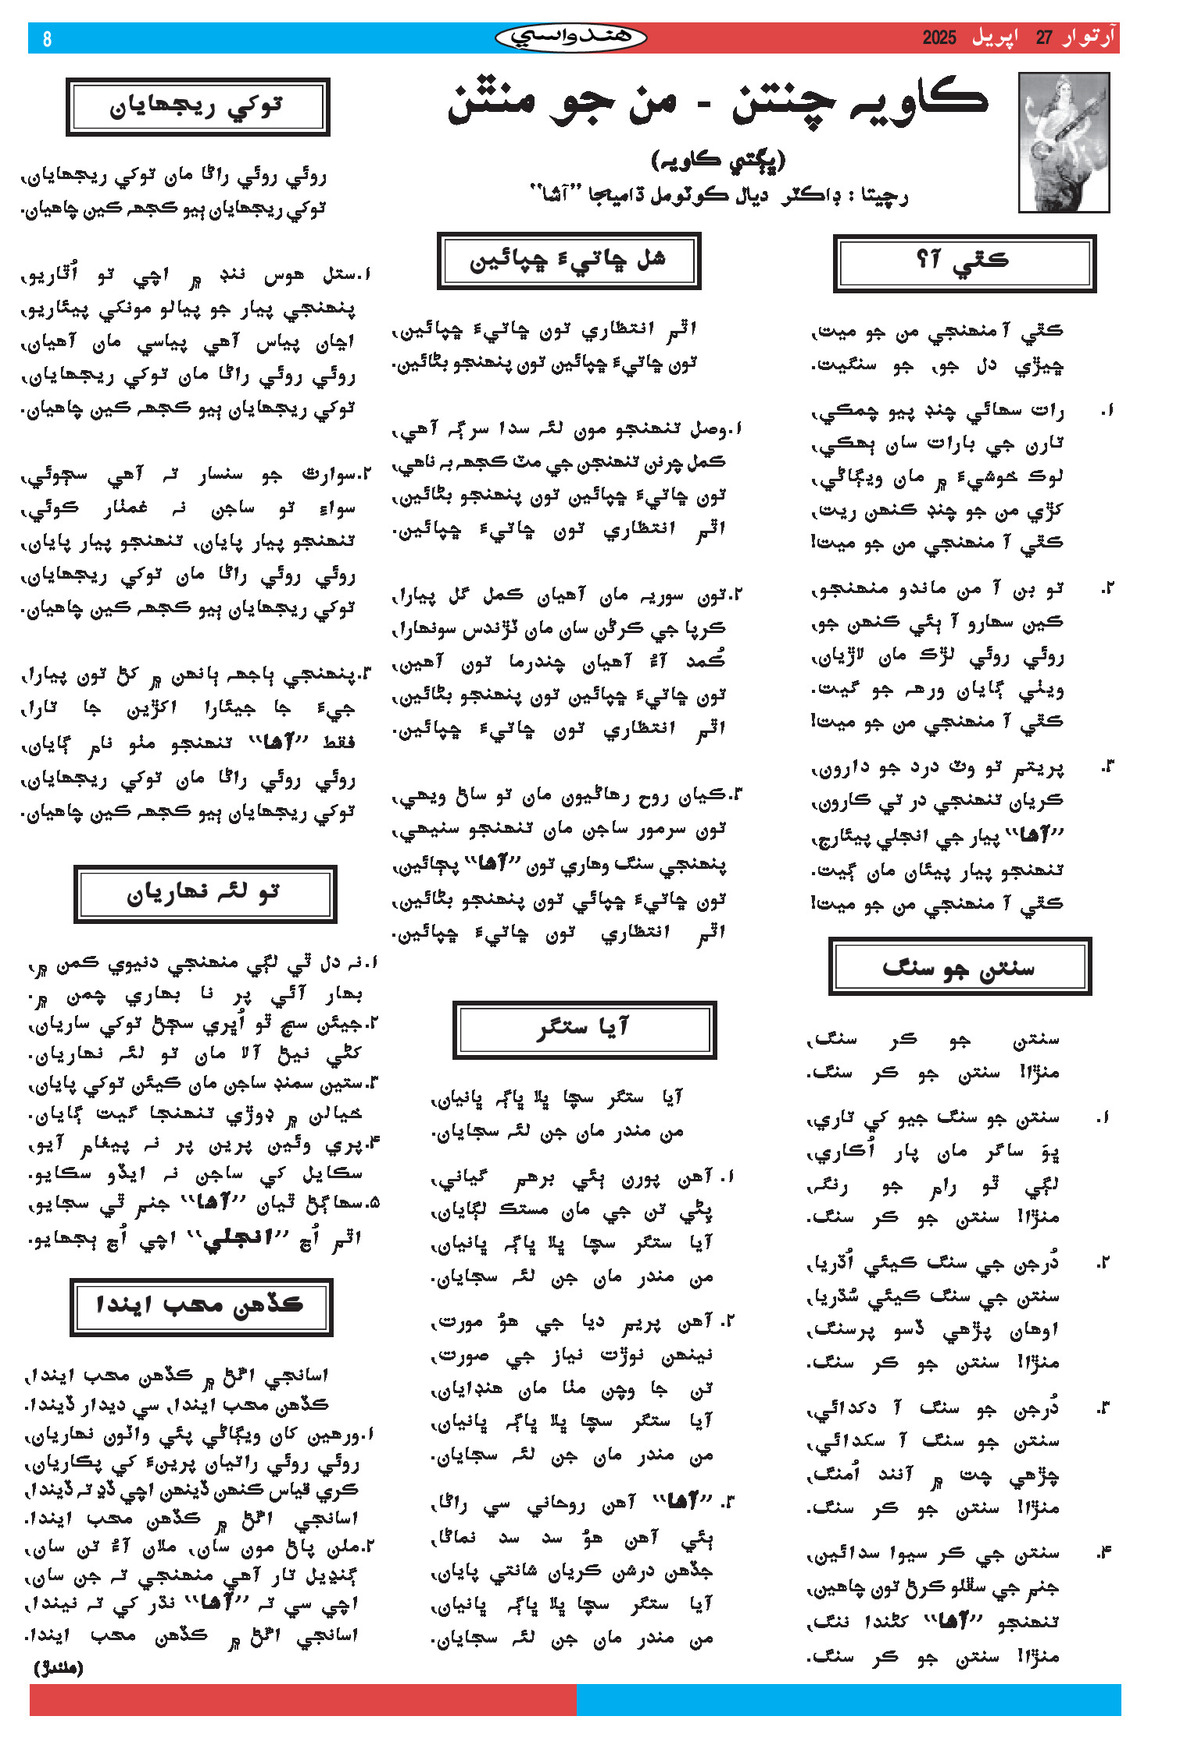 آرتوار 27 اپريل 2025
هندواسي
8
ڪاويہ چنتن - من جو منٿن
(ڀڳتي ڪاويہ)
رچيتا : ڊاڪٽر ديال ڪوٽومل ڌاميجا ”آشا“
ڪٿي آ؟
ڪٿي آ منهنجي من جو ميت،
ڇيڙي دل جو، جو سنگيت.
۱. رات سهائي چنڊ پيو چمڪي،
تارن جي بارات سان ٻهڪي،
لوڪ خوشيءَ ۾ مان ويڳاڻي،
کڙي من جو چنڊ ڪنهن ريت،
ڪٿي آ منهنجي من جو ميت!
۲. تو بن آ من ماندو منهنجو،
ڪين سهارو آ ٻئي ڪنهن جو،
روئي روئي لڙڪ مان لاڙيان،
ويٺي ڳايان ورهہ جو گيت.
ڪٿي آ منهنجي من جو ميت!
۳. پريتم تو وٽ درد جو دارون،
ڪريان تنهنجي در تي ڪارون،
”آشا“ پيار جي انجلي پيئارج،
تنهنجو پيار پيئان مان ڳيت.
ڪٿي آ منهنجي من جو ميت!
سنتن جو سنگ
سنتن جو ڪر سنگ،
منڙا! سنتن جو ڪر سنگ.
۱. سنتن جو سنگ جيو کي تاري،
ڀوَ ساگر مان پار اُڪاري،
لڳي ٿو رام جو رنگ،
منڙا! سنتن جو ڪر سنگ.
۲. دُرجن جي سنگ ڪيئي اُڏريا،
سنتن جي سنگ ڪيئي سُڌريا،
اوهان پڙهي ڏسو پرسنگ،
منڙا! سنتن جو ڪر سنگ.
۳. دُرجن جو سنگ آ دکدائي،
سنتن جو سنگ آ سکدائي،
چڙهي چت ۾ آنند اُمنگ،
منڙا! سنتن جو ڪر سنگ.
۴. سنتن جي ڪر سيوا سدائين،
جنم جي سڦلو ڪرڻ تون چاهين،
تنهنجو ”آشا“ کڻندا ننگ،
منڙا! سنتن جو ڪر سنگ.
شل ڇاتيءَ ڇپائين
اٿم انتظاري تون ڇاتيءَ ڇپائين،
تون ڇاتيءَ ڇپائين تون پنهنجو بڻائين.
۱.وصل تنهنجو مون لئہ سدا سرڳہ آهي،
ڪمل چرنن تنهنجن جي مٽ ڪجهہ بہ ناهي،
تون ڇاتيءَ ڇپائين تون پنهنجو بڻائين،
اٿم انتظاري تون ڇاتيءَ ڇپائين.
۲.تون سوريہ مان آهيان ڪمل گل پيارا،
ڪرپا جي ڪرڻن سان مان ٽڙندس سونهارا،
ڪُمد آءٌ آهيان چندرما تون آهين،
تون ڇاتيءَ ڇپائين تون پنهنجو بڻائين،
اٿم انتظاري تون ڇاتيءَ ڇپائين.
۳.ڪيان روح رهاڻيون مان تو ساڻ ويهي،
تون سرمور ساجن مان تنهنجو سنيهي،
پنهنجي سنگ وهاري تون ”آشا“ پڄائين،
تون ڇاتيءَ ڇپائي تون پنهنجو بڻائين،
اٿم انتظاري تون ڇاتيءَ ڇپائين.
آيا ستگر
آيا ستگر سچا ڀلا ڀاڳہ ڀانيان،
من مندر مان جن لئہ سجايان.
۱. آهن پورن ٻئي برهم گياني،
پڻي تن جي مان مستڪ لڳايان،
آيا ستگر سچا ڀلا ڀاڳہ ڀانيان،
من مندر مان جن لئہ سجايان.
۲. آهن پريم ديا جي هوُ مورت،
نينهن نوڙت نياز جي صورت،
تن جا وچن مٺا مان هنڊايان،
آيا ستگر سچا ڀلا ڀاڳہ ڀانيان،
من مندر مان جن لئہ سجايان.
۳. ”آشا“ آهن روحاني سي راڻا،
ٻئي آهن هوُ سد سد نماڻا،
جڏهن درشن ڪريان شانتي پايان،
آيا ستگر سچا ڀلا ڀاڳہ ڀانيان،
من مندر مان جن لئہ سجايان.
توکي ريجهايان
روئي روئي راڻا مان توکي ريجهايان،
توکي ريجهايان ٻيو ڪجهہ ڪين چاهيان.
۱.ستل هوس ننڊ ۾ اچي تو اُٿاريو،
پنهنجي پيار جو پيالو مونکي پيئاريو،
اڃان پياس آهي پياسي مان آهيان،
روئي روئي راڻا مان توکي ريجهايان،
توکي ريجهايان ٻيو ڪجهہ ڪين چاهيان.
۲.سوارٿ جو سنسار تہ آهي سڄوئي،
سواءِ تو ساجن نہ غمٺار ڪوئي،
تنهنجو پيار پايان، تنهنجو پيار پايان،
روئي روئي راڻا مان توکي ريجهايان،
توکي ريجهايان ٻيو ڪجهہ ڪين چاهيان.
۳.پنهنجي ٻاجهہ ٻانهن ۾ کڻ تون پيارا،
جيءَ جا جيئارا اکڙين جا تارا،
فقط ”آشا“ تنهنجو مٺو نام ڳايان،
روئي روئي راڻا مان توکي ريجهايان،
توکي ريجهايان ٻيو ڪجهہ ڪين چاهيان.
تو لئہ نهاريان
۱.نہ دل ٿي لڳي منهنجي دنيوي ڪمن ۾،
بهار آئي پر نا بهاري چمن ۾.
۲.جيئن سج ٿو اُڀري سڄڻ توکي ساريان،
کڻي نيڻ آلا مان تو لئہ نهاريان.
۳.ستين سمنڊ ساجن مان ڪيئن توکي پايان،
خيالن ۾ ڊوڙي تنهنجا گيت ڳايان.
۴.پري وئين پرين پر نہ پيغام آيو،
سڪايل کي ساجن نہ ايڏو سڪايو.
۵.سهاڳڻ ٿيان ”آشا“ جنم ٿي سجايو،
اٿم اُڃ ”انجلي“ اچي اُڃ ٻجهايو.
ڪڏهن محب ايندا
اسانجي اڱڻ ۾ ڪڏهن محب ايندا،
ڪڏهن محب ايندا، سي ديدار ڏيندا.
۱.ورهين کان ويڳاڻي پئي واٽون نهاريان،
روئي روئي راتيان پرينءَ کي پڪاريان،
ڪري قياس ڪنهن ڏينهن اچي ڏڍ تہ ڏيندا،
اسانجي اڱڻ ۾ ڪڏهن محب ايندا.
۲.ملن پاڻ مون سان، ملان آءٌ تن سان،
ڳنڍيل تار آهي منهنجي تہ جن سان،
اچي سي تہ ”آشا“ نڌر کي تہ نيندا،
اسانجي اڱڻ ۾ ڪڏهن محب ايندا.
(هلندڙ)